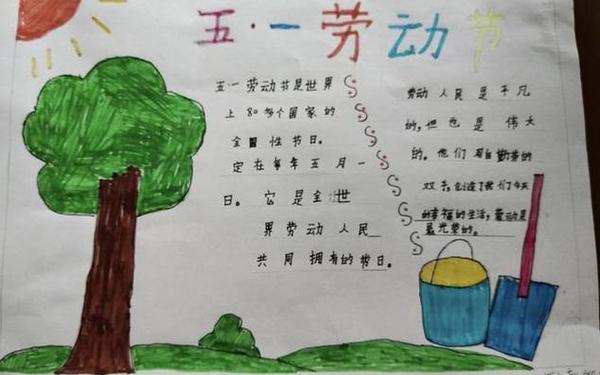 五·一劳动节
五一劳动节是世界
上80多个国家的
全国性节日。
定在每年五月一
日。它是全世
界劳动人民
共同拥有的节日。
劳动人民是平凡
的,但也是伟大
的。他们用自勤劳的
双手,创造了我们今天
的幸福的生活,劳动是
最光荣的。